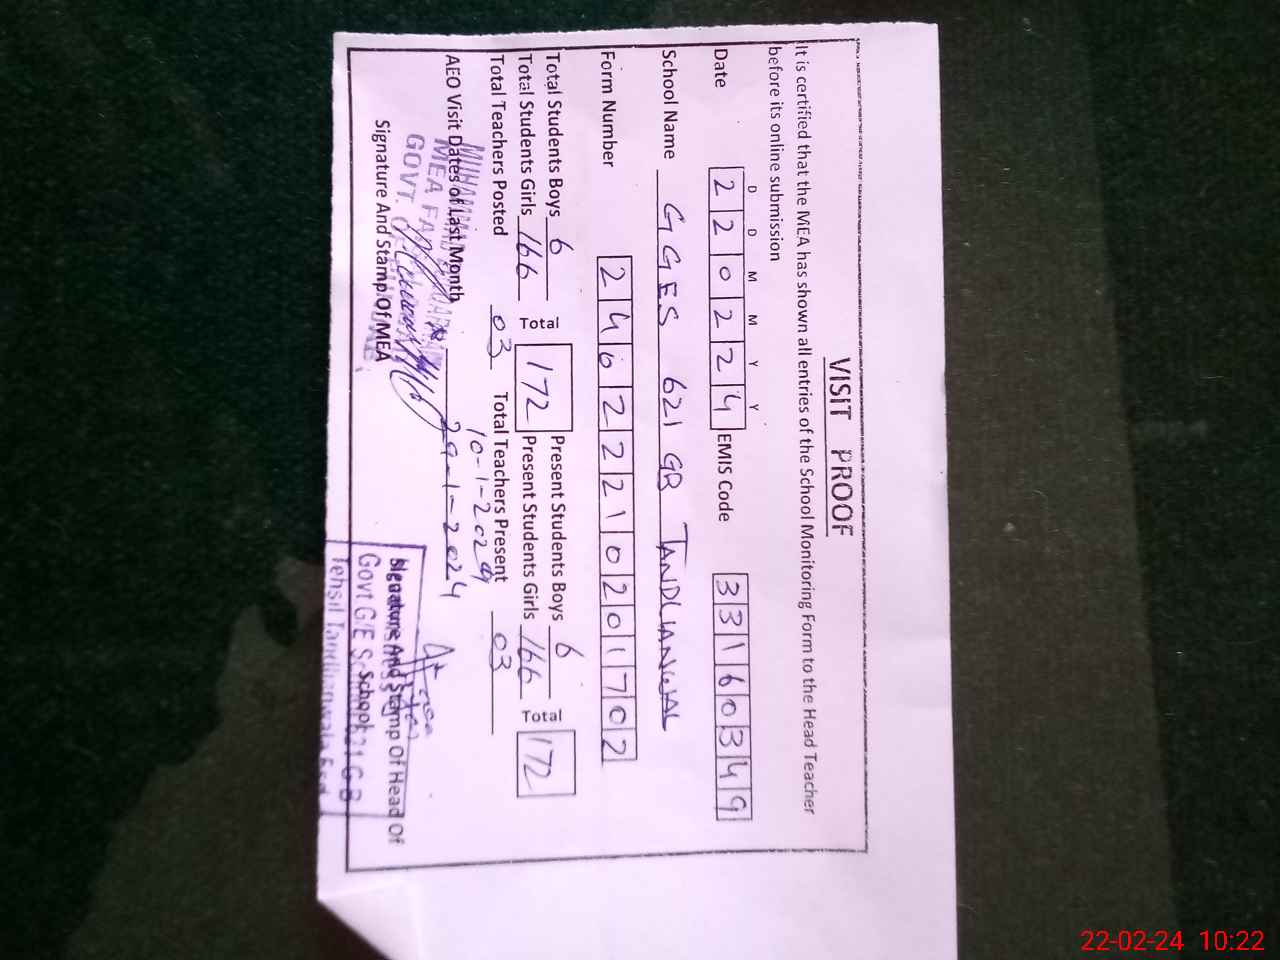 VISIT PROOF
It is certified that the MEA has shown all entries of the School Monitoring Form to the Head Teacher
before its online submission
D D M M Y Y
Date 2 2 0 2 2 4 EMIS Code 3 3 1 6 0 3 4 9
School Name GGES 621 GB TANDLIANWAL
Form Number 2 4 6 2 2 2 1 0 2 0 1 7 0 2
Total Students Boys 6 Present Students Boys 6
Total 172 Total 172
Total Students Girls 166 Present Students Girls 166
Total Teachers Posted 03 Total Teachers Present 03
10-1-2024
AEO Visit Dates of Last Month 29-1-2024
MEA
GOVT.
Signature And Stamp Of MEA
Signature And Stamp Of Head Of
School
Govt G/E School 621 GB
Tehsil Tandlianwala Fsd
22-02-24 10:22